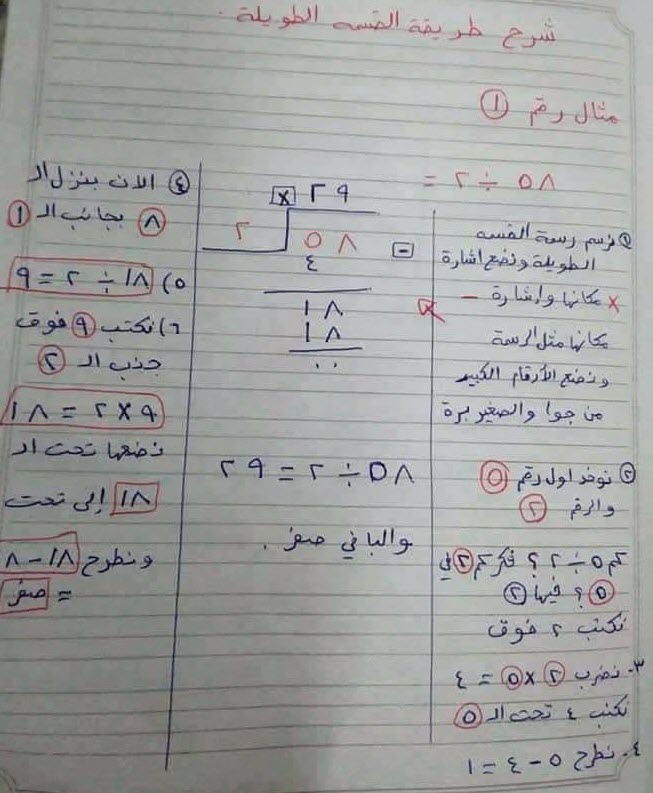 شرح طريقة القسمه الطويلة.
مثال رقم ١
٥٨ ÷ ٢ =
١ نرسم رسمة القسمه
الطويلة ونضع اشارة
× مكانها واشارة −
مكانها مثل الرسمة
ونضع الأرقام الكبير
من جوا والصغير برة
٢ نوخد اول رقم ٥
والرقم ٢
كم ٥ ÷ ٢ ؟ فكر كم ٢ في
٥ ؟ فيها ٢
نكتب ٢ فوق
٣- نضرب ٢ × ٥ = ٤
نكتب ٤ تحت الـ ٥
٤- نطرح ٥ − ٤ = ١
× ٢٩
٢ ٥٨ −
٤
١٨
١٨
٠٠
٥٨ ÷ ٢ = ٢٩
والباقي صفر.
٤ الان بننزل الـ
٨ بجانب الـ ١
٥) ١٨ ÷ ٢ = ٩
٦) نكتب ٩ فوق
جذب الـ ٢
٩ × ٢ = ١٨
نضعها تحت الـ
١٨ إلى تحت
ونطرح ١٨ − ٨
= صفر